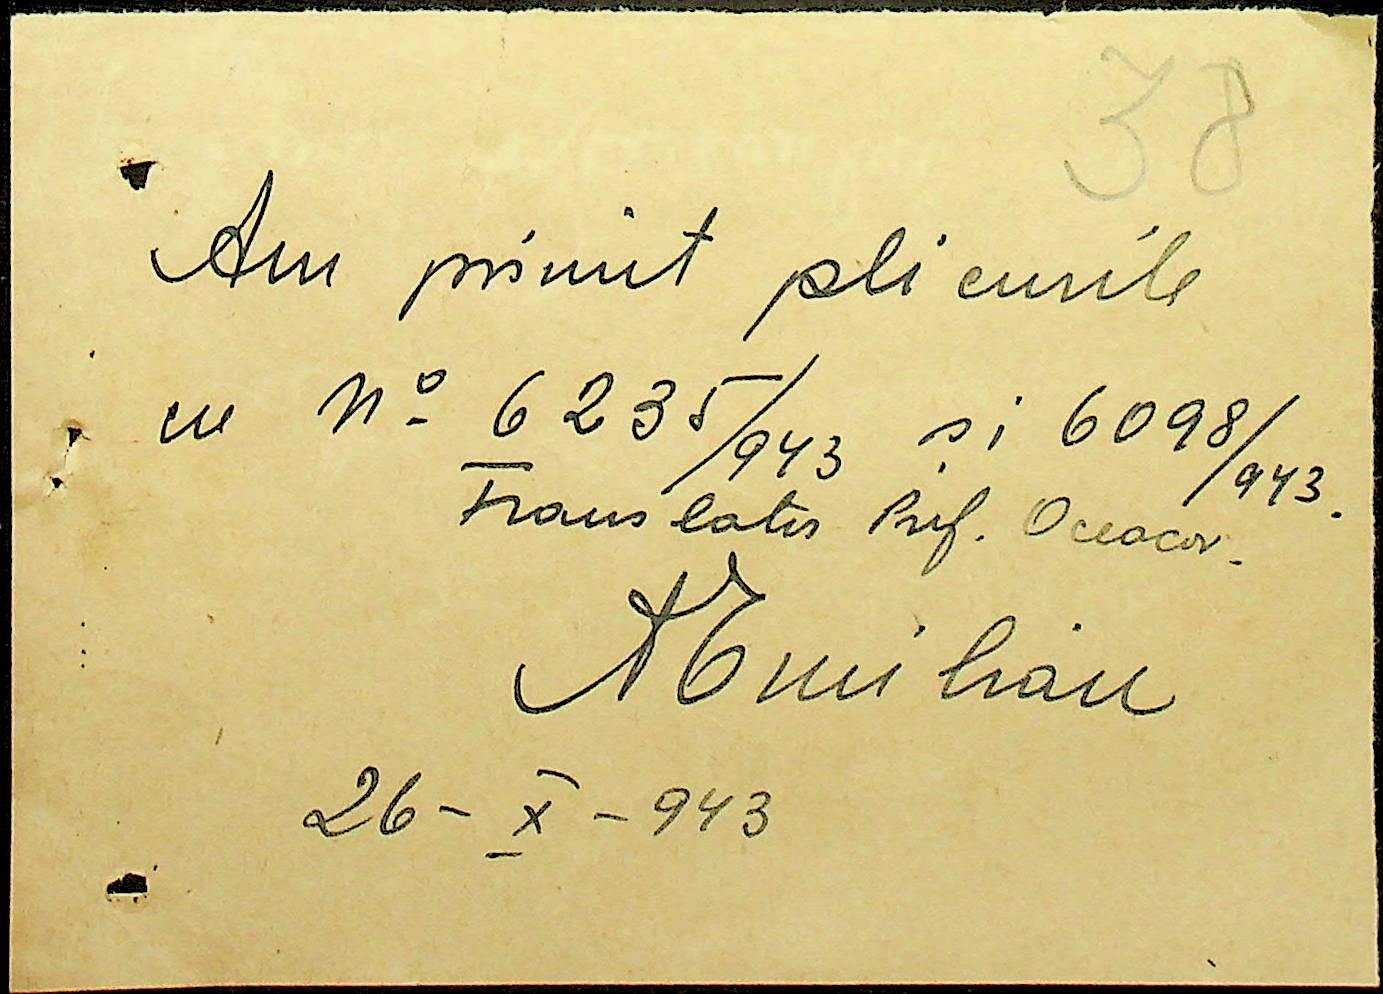 38
Am primit plicurile
cu No 6235/943 și 6098/943.
Translator Pref. Oceacov.
A Emilian
26-X-943